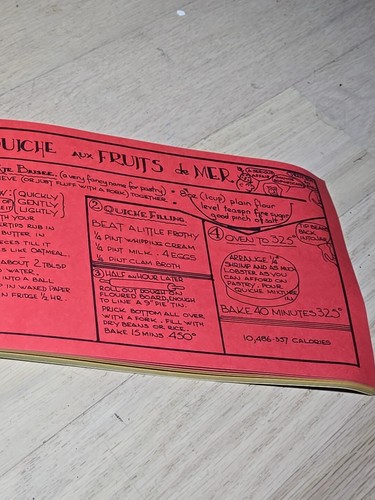 QUICHE AUX FRUITS de MER
BRISEE. (a very fancy name for pastry)
SIEVE (OR JUST FLUFF WITH A FORK) TOGETHER
8oz (1 cup) plain flour
level teaspn fine sugar
good pinch of salt
QUICKLY
GENTLY
LIGHTLY
WITH YOUR
RUB IN
BUTTER. IN
TILL IT
LIKE OATMEAL.
ABOUT 2 TBLSP
WATER
INTO A BALL
IN WAXED PAPER
IN FRIDGE ½ HR.
2 QUICHE FILLING.
BEAT A LITTLE FROTHY.
¼ PINT WHIPPING CREAM
¼ PINT MILK. 4 EGGS
¼ PINT CLAM BROTH
3 HALF AN HOUR LATER
ROLL OUT DOUGH ON
FLOURED BOARD, ENOUGH
TO LINE A 9" PIE TIN.
PRICK BOTTOM ALL OVER
WITH A FORK. FILL WITH
DRY BEANS OR RICE.
BAKE 15 MINS. 450°
4 OVEN TO 325°
ARRANGE ¼
SHRIMP AND AS MUCH
LOBSTER AS YOU
CAN AFFORD ON
PASTRY. POUR
QUICHE MIXTURE
IN
BAKE 40 MINUTES 325°
10,486.557 CALORIES